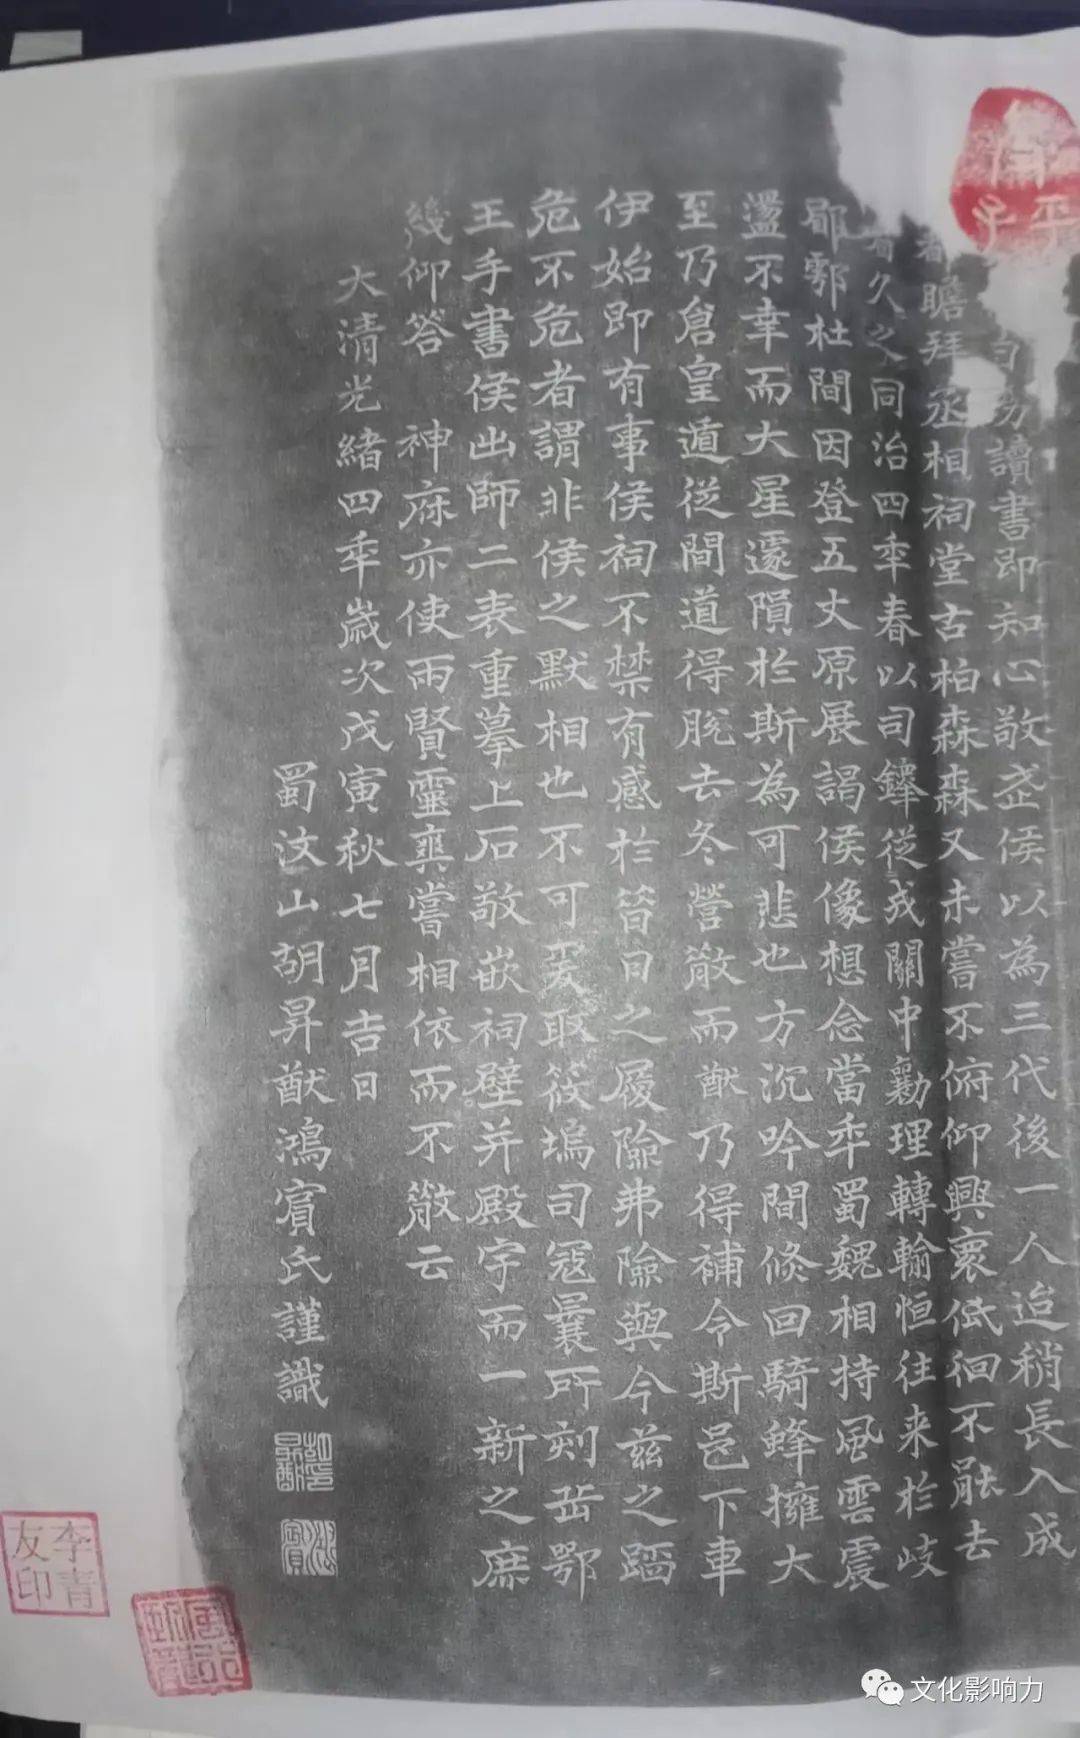 自幼讀書即知心敬武侯以為三代後一人迨稍長入成
瞻拜丞相祠堂古柏森森又未嘗不俯仰興裏低徊不能去
久之同治四年春以司鐸從戎關中勷理轉輸恒往来於岐
郿鄠杜間因登五丈原展謁侯像想念當年蜀魏相持風雲震
盪不幸而大星遽隕於斯為可悲也方沉吟間倏回騎蜂擁大
至乃倉皇遁從間道得脫去冬營散而猷乃得補令斯邑下車
伊始即有事侯祠不禁有感於昔日之履險弗險與今茲之蹈
危不危者謂非侯之默相也不可爰取筱塢司寇曩所刻岳鄂
王手書侯出師二表重摹上石敬嵌祠壁并殿宇而一新之庶
幾仰答 神庥亦使兩賢靈爽嘗相依而不散云
大清光緒四年歲次戊寅秋七月吉日
蜀汶山胡昇猷鴻賓氏謹識
李青友印
文化影响力